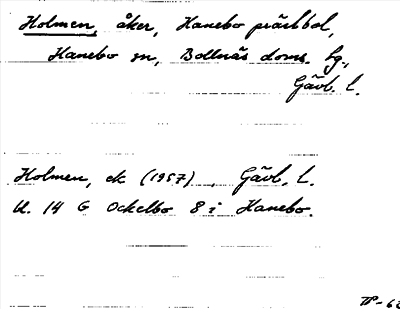 Holmen, åker, Hanebo prästbol,
Hanebo sn, Bollnäs doms. tg.,
Gävl. l.
Holmen, ek (1957) Gävl. l.
bl. 14 G Ockelbo 8 i Hanebo.